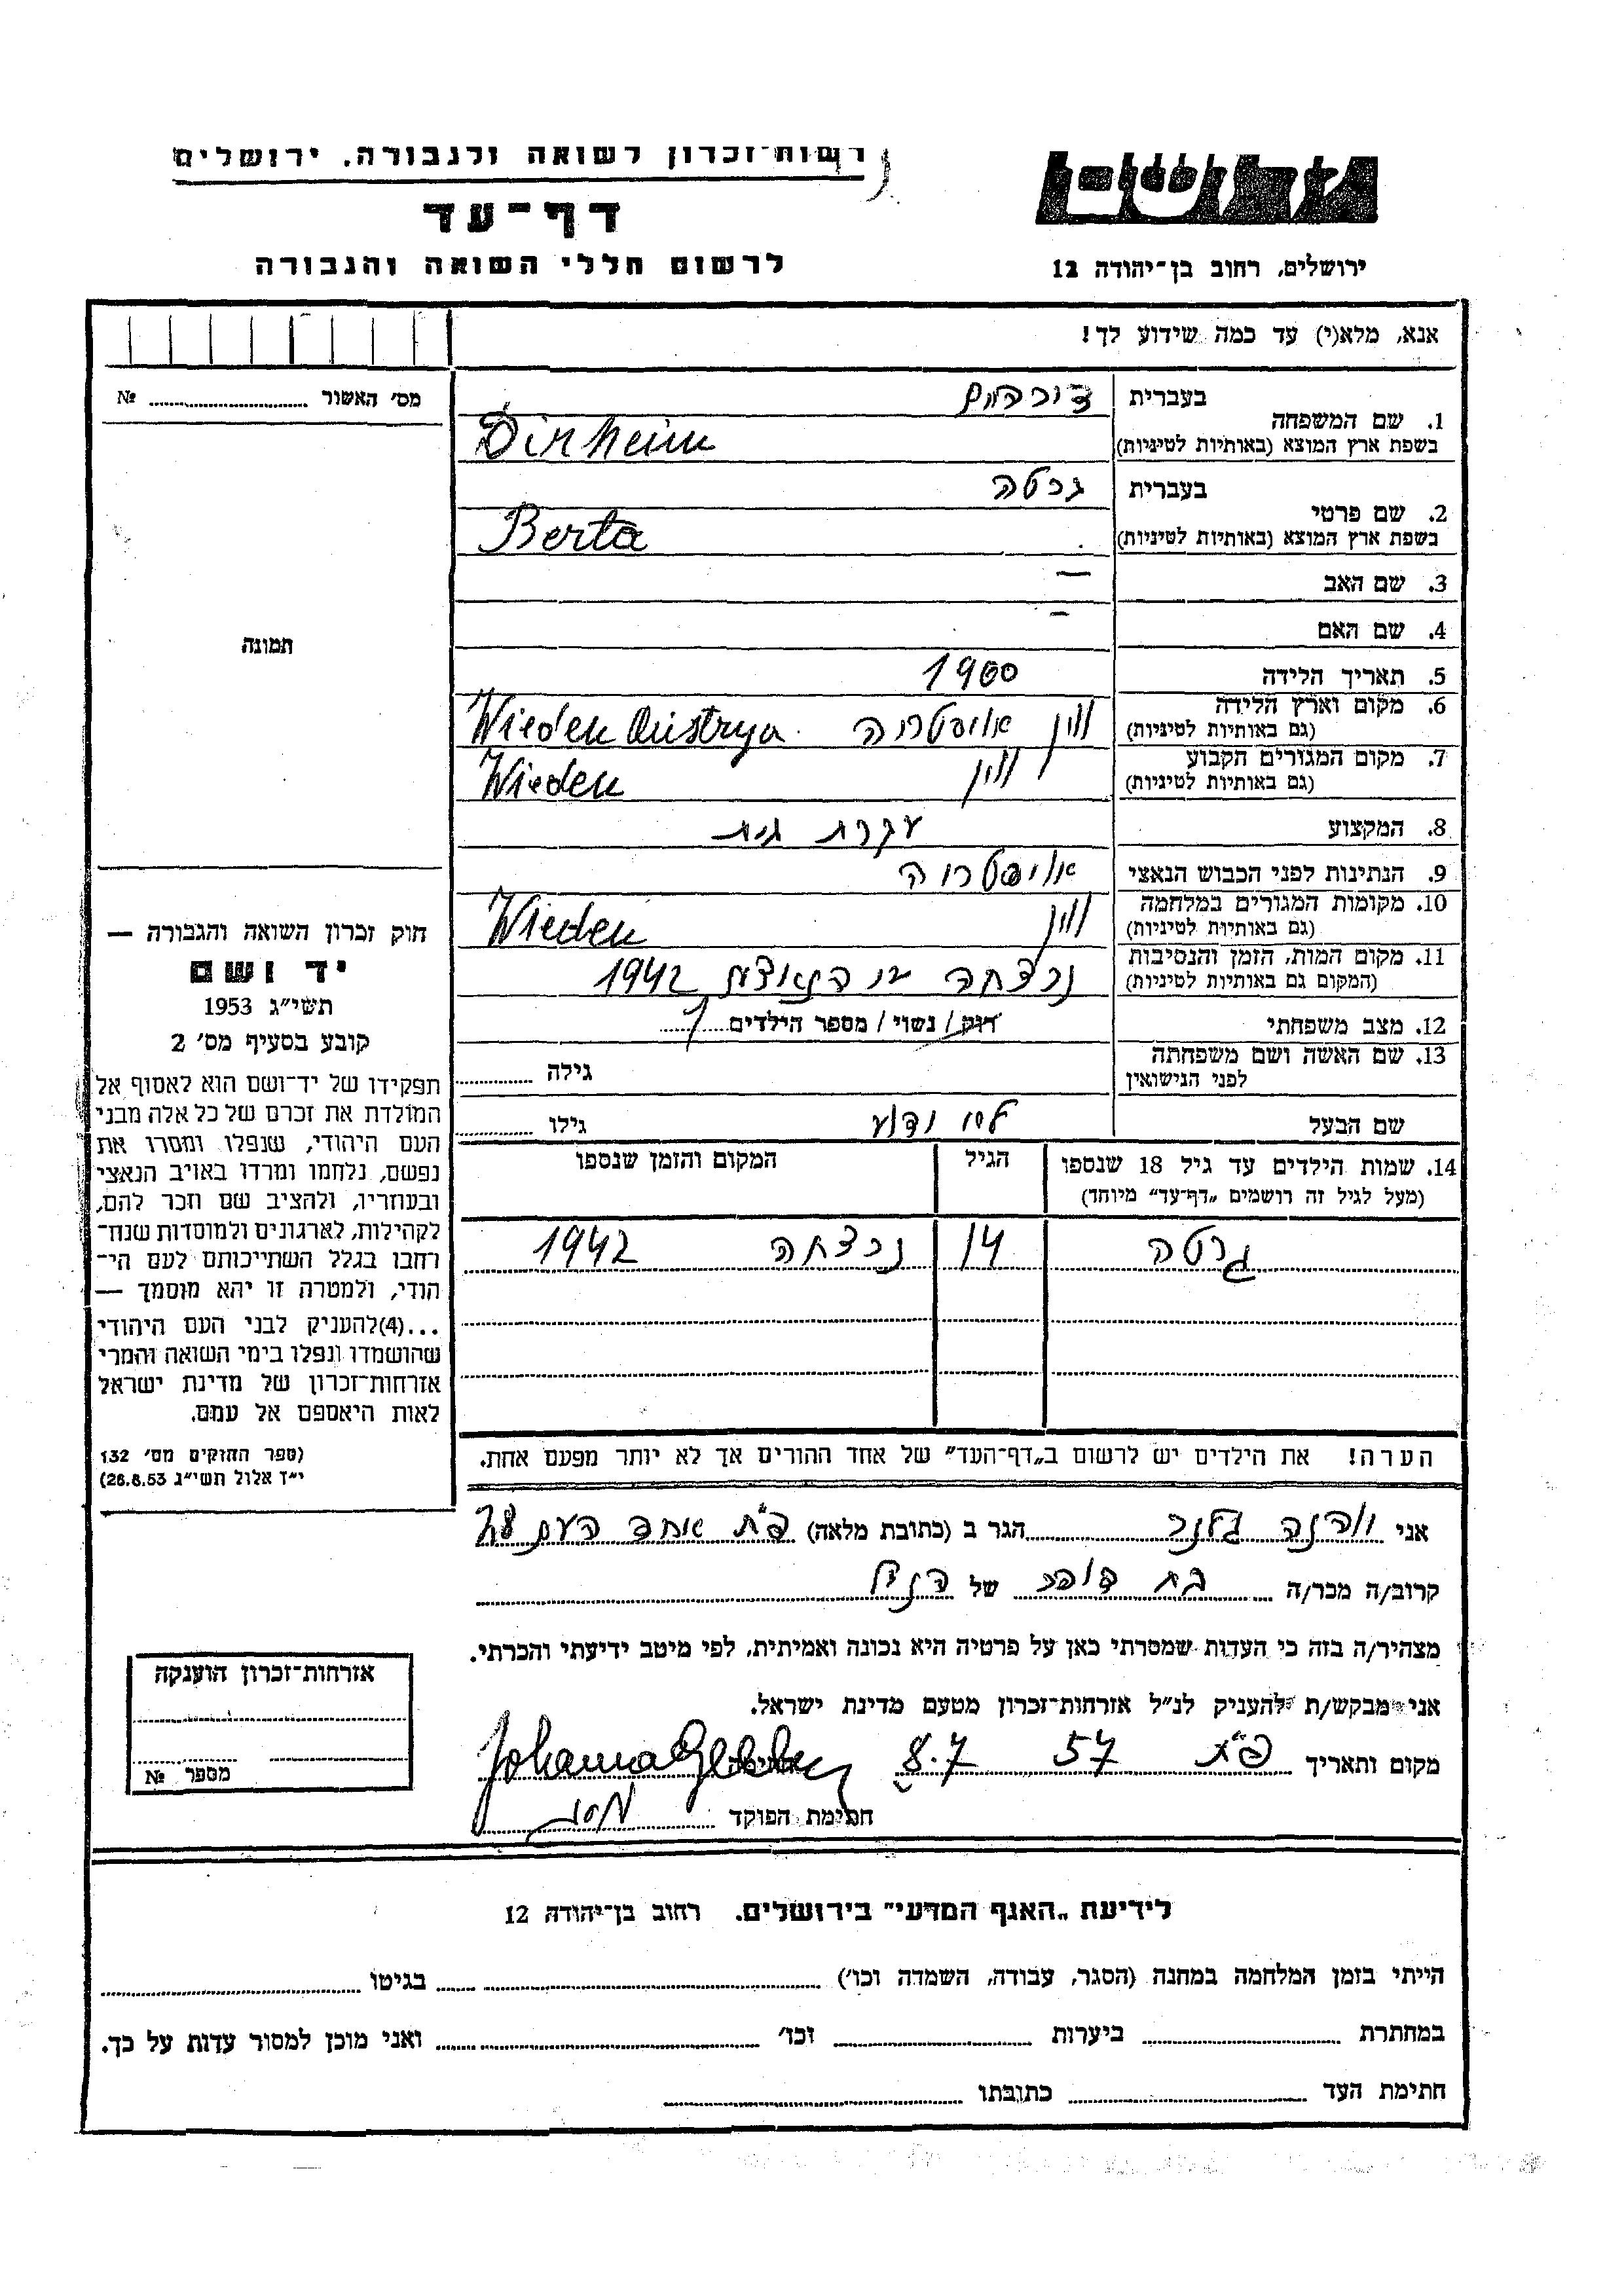 רשות־זכרון לשואה ולגבורה. ירושלים
דף־עד
לרשום חללי השואה והגבורה
ירושלים, רחוב בן־יהודה 12
אנא, מלא(י) עד כמה שידוע לך!
מס׳ האשור № ....................
1. שם המשפחה
בעברית
בשפת ארץ המוצא (באותיות לטיניות)
Dirheim
2. שם פרטי
בעברית ברטה
בשפת ארץ המוצא (באותיות לטיניות)
Berta
3. שם האב —
4. שם האם —
5. תאריך הלידה 1900
6. מקום וארץ הלידה
(גם באותיות לטיניות)
וין אויסטריה Wieden Austrya
7. מקום המגורים הקבוע
(גם באותיות לטיניות)
וין Wieden
8. המקצוע עקרת בית
9. הנתינות לפני הכבוש הנאצי אויסטריה
10. מקומות המגורים במלחמה
(גם באותיות לטיניות)
וין Wieden
11. מקום המות, הזמן והנסיבות
(המקום גם באותיות לטיניות)
נרצחה 1942
12. מצב משפחתי רווק/ נשוי/ מספר הילדים 1
13. שם האשה ושם משפחתה
לפני הנישואין
גילה ............
שם הבעל לא ידוע גילו ............
14. שמות הילדים עד גיל 18 שנספו
(מעל לגיל זה רושמים „דף־עד״ מיוחד)
הגיל
המקום והזמן שנספו
גרטה 14 נרצחה 1942
הערה! את הילדים יש לרשום ב„דף־העד״ של אחד ההורים אך לא יותר מפעם אחת.
תמונה
חוק זכרון השואה והגבורה —
יד ושם
תשי״ג 1953
קובע בסעיף מס׳ 2
תפקידו של יד־ושם הוא לאסוף אל
המולדת את זכרם של כל אלה מבני
העם היהודי, שנפלו ומסרו את
נפשם, נלחמו ומרדו באויב הנאצי
ובעוזריו, ולהציב שם וזכר להם,
לקהילות, לארגונים ולמוסדות שנח־
רחבו בגלל השתייכותם לעם הי־
הודי, ולמטרה זו יהא מוסמך —
...(4)להעניק לבני העם היהודי
שהושמדו ונפלו בימי השואה והמרי
אזרחות־זכרון של מדינת ישראל
לאות היאספם אל עמם.
(ספר החוקים מס׳ 132
י״ד אלול תשי״ג 26.8.53)
אני יוהנה הגר ב (כתובת מלאה) פ״ת אחד העם 28
קרוב/ה מכר/ה בת דודה של הנ״ל
מצהיר/ה בזה כי העדות שמסרתי כאן על פרטיה היא נכונה ואמיתית, לפי מיטב ידיעתי והכרתי.
אני מבקש/ת להעניק לנ״ל אזרחות־זכרון מטעם מדינת ישראל.
מקום ותאריך פ״ת 57 8.7 Johanna
חתימת הפוקד
אזרחות־זכרון הוענקה
מספר №
לידיעת „האגף המדעי״ בירושלים. רחוב בן־יהודה 12
הייתי בזמן המלחמה במחנה (הסגר, עבודה, השמדה וכו׳) .................... בגיטו ....................
במחתרת .................... ביערות .................... וכו׳ .................... ואני מוכן למסור עדות על כך.
חתימת העד .................... כתובתו ....................